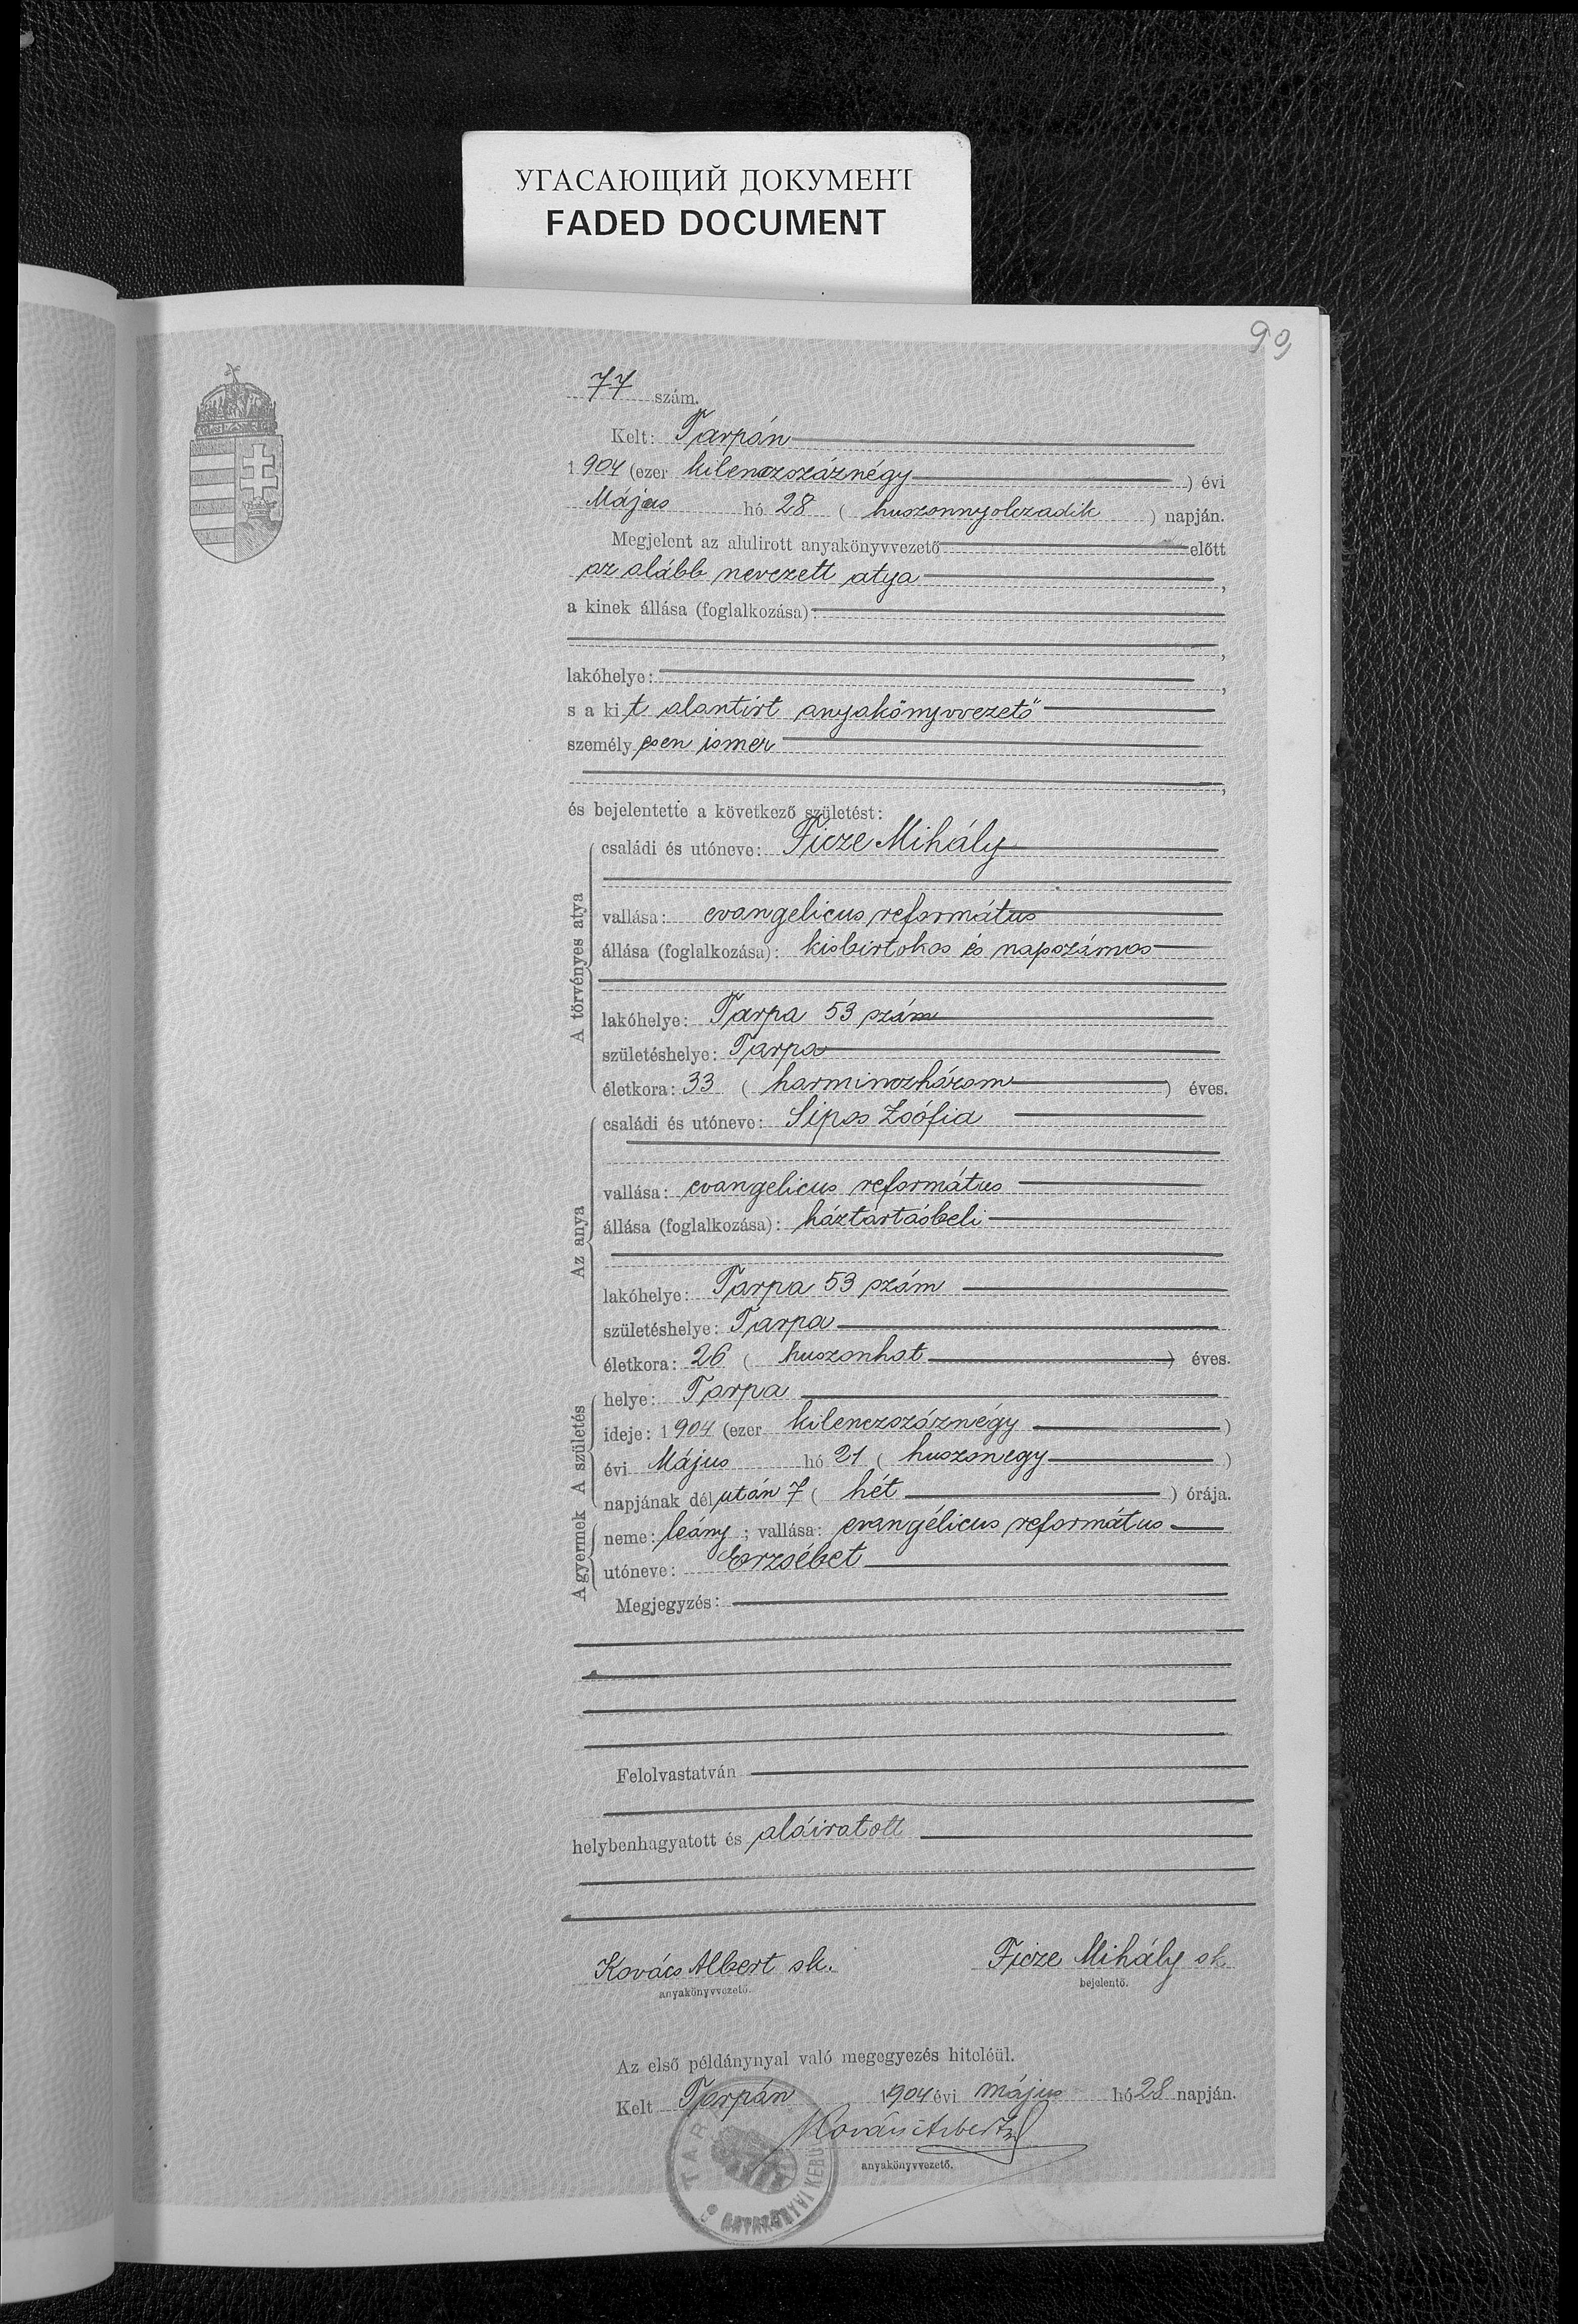 УГАСАЮЩИЙ ДОКУМЕНТ
FADED DOCUMENT
99
77 szám.
Kelt: Tarpán
1904 (ezer kilenczszáznégy) évi
Május hó 28 (huszonnyolczadik) napján.
Megjelent az alulirott anyakönyvvezető előtt
az alább nevezett atya,
a kinek állása (foglalkozása):
,
lakóhelye: ,
s a kit alantirt anyakönyvvezető
személyesen ismer
,
és bejelentette a következő születést:
A törvényes atya
családi és utóneve: Ficze Mihály
vallása: evangelicus református
állása (foglalkozása): kisbirtokos és napszámos
lakóhelye: Tarpa 53 szám
születéshelye: Tarpa
életkora: 33 (harminczhárom) éves.
Az anya
családi és utóneve: Sipos Zsófia
vallása: evangelicus református
állása (foglalkozása): háztartásbeli
lakóhelye: Tarpa 53 szám
születéshelye: Tarpa
életkora: 26 (huszonhat) éves.
A születés
helye: Tarpa
ideje: 1904 (ezer kilenczszáznégy)
évi Május hó 21 (huszonegy)
napjának délután 7 (hét) órája.
A gyermek
neme: leány; vallása: evangélicus református
utóneve: Erzsébet
Megjegyzés:
Felolvastatván
helybenhagyatott és aláiratott
Kovács Albert sk. Ficze Mihály sk
anyakönyvvezető. bejelentő.
Az első példánynyal való megegyezés hiteléül.
Kelt Tarpán 1904 évi május hó 28 napján.
Kovács Albert
anyakönyvvezető.